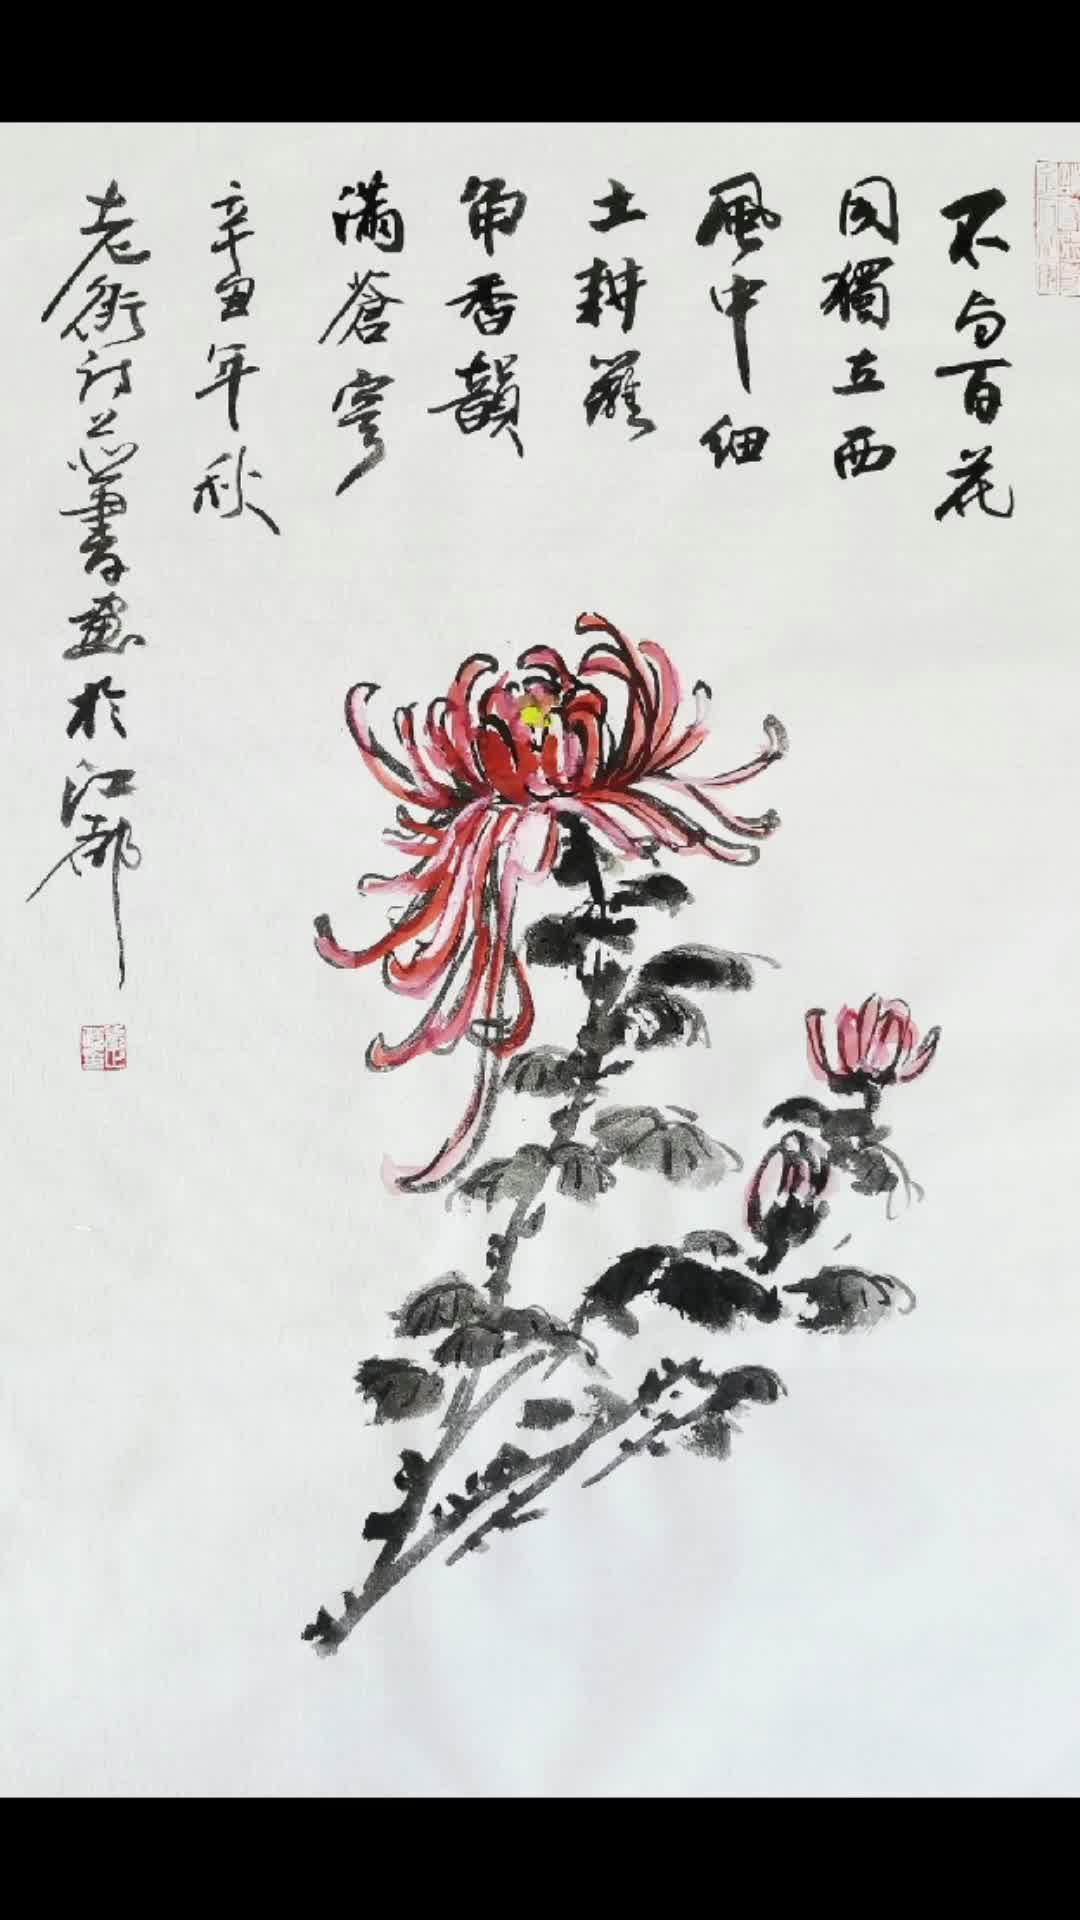 不与百花
同獨立西
風中細
土耕籬
角香韻
滿蒼穹
辛丑年秋
老衡詩并書畫於江都